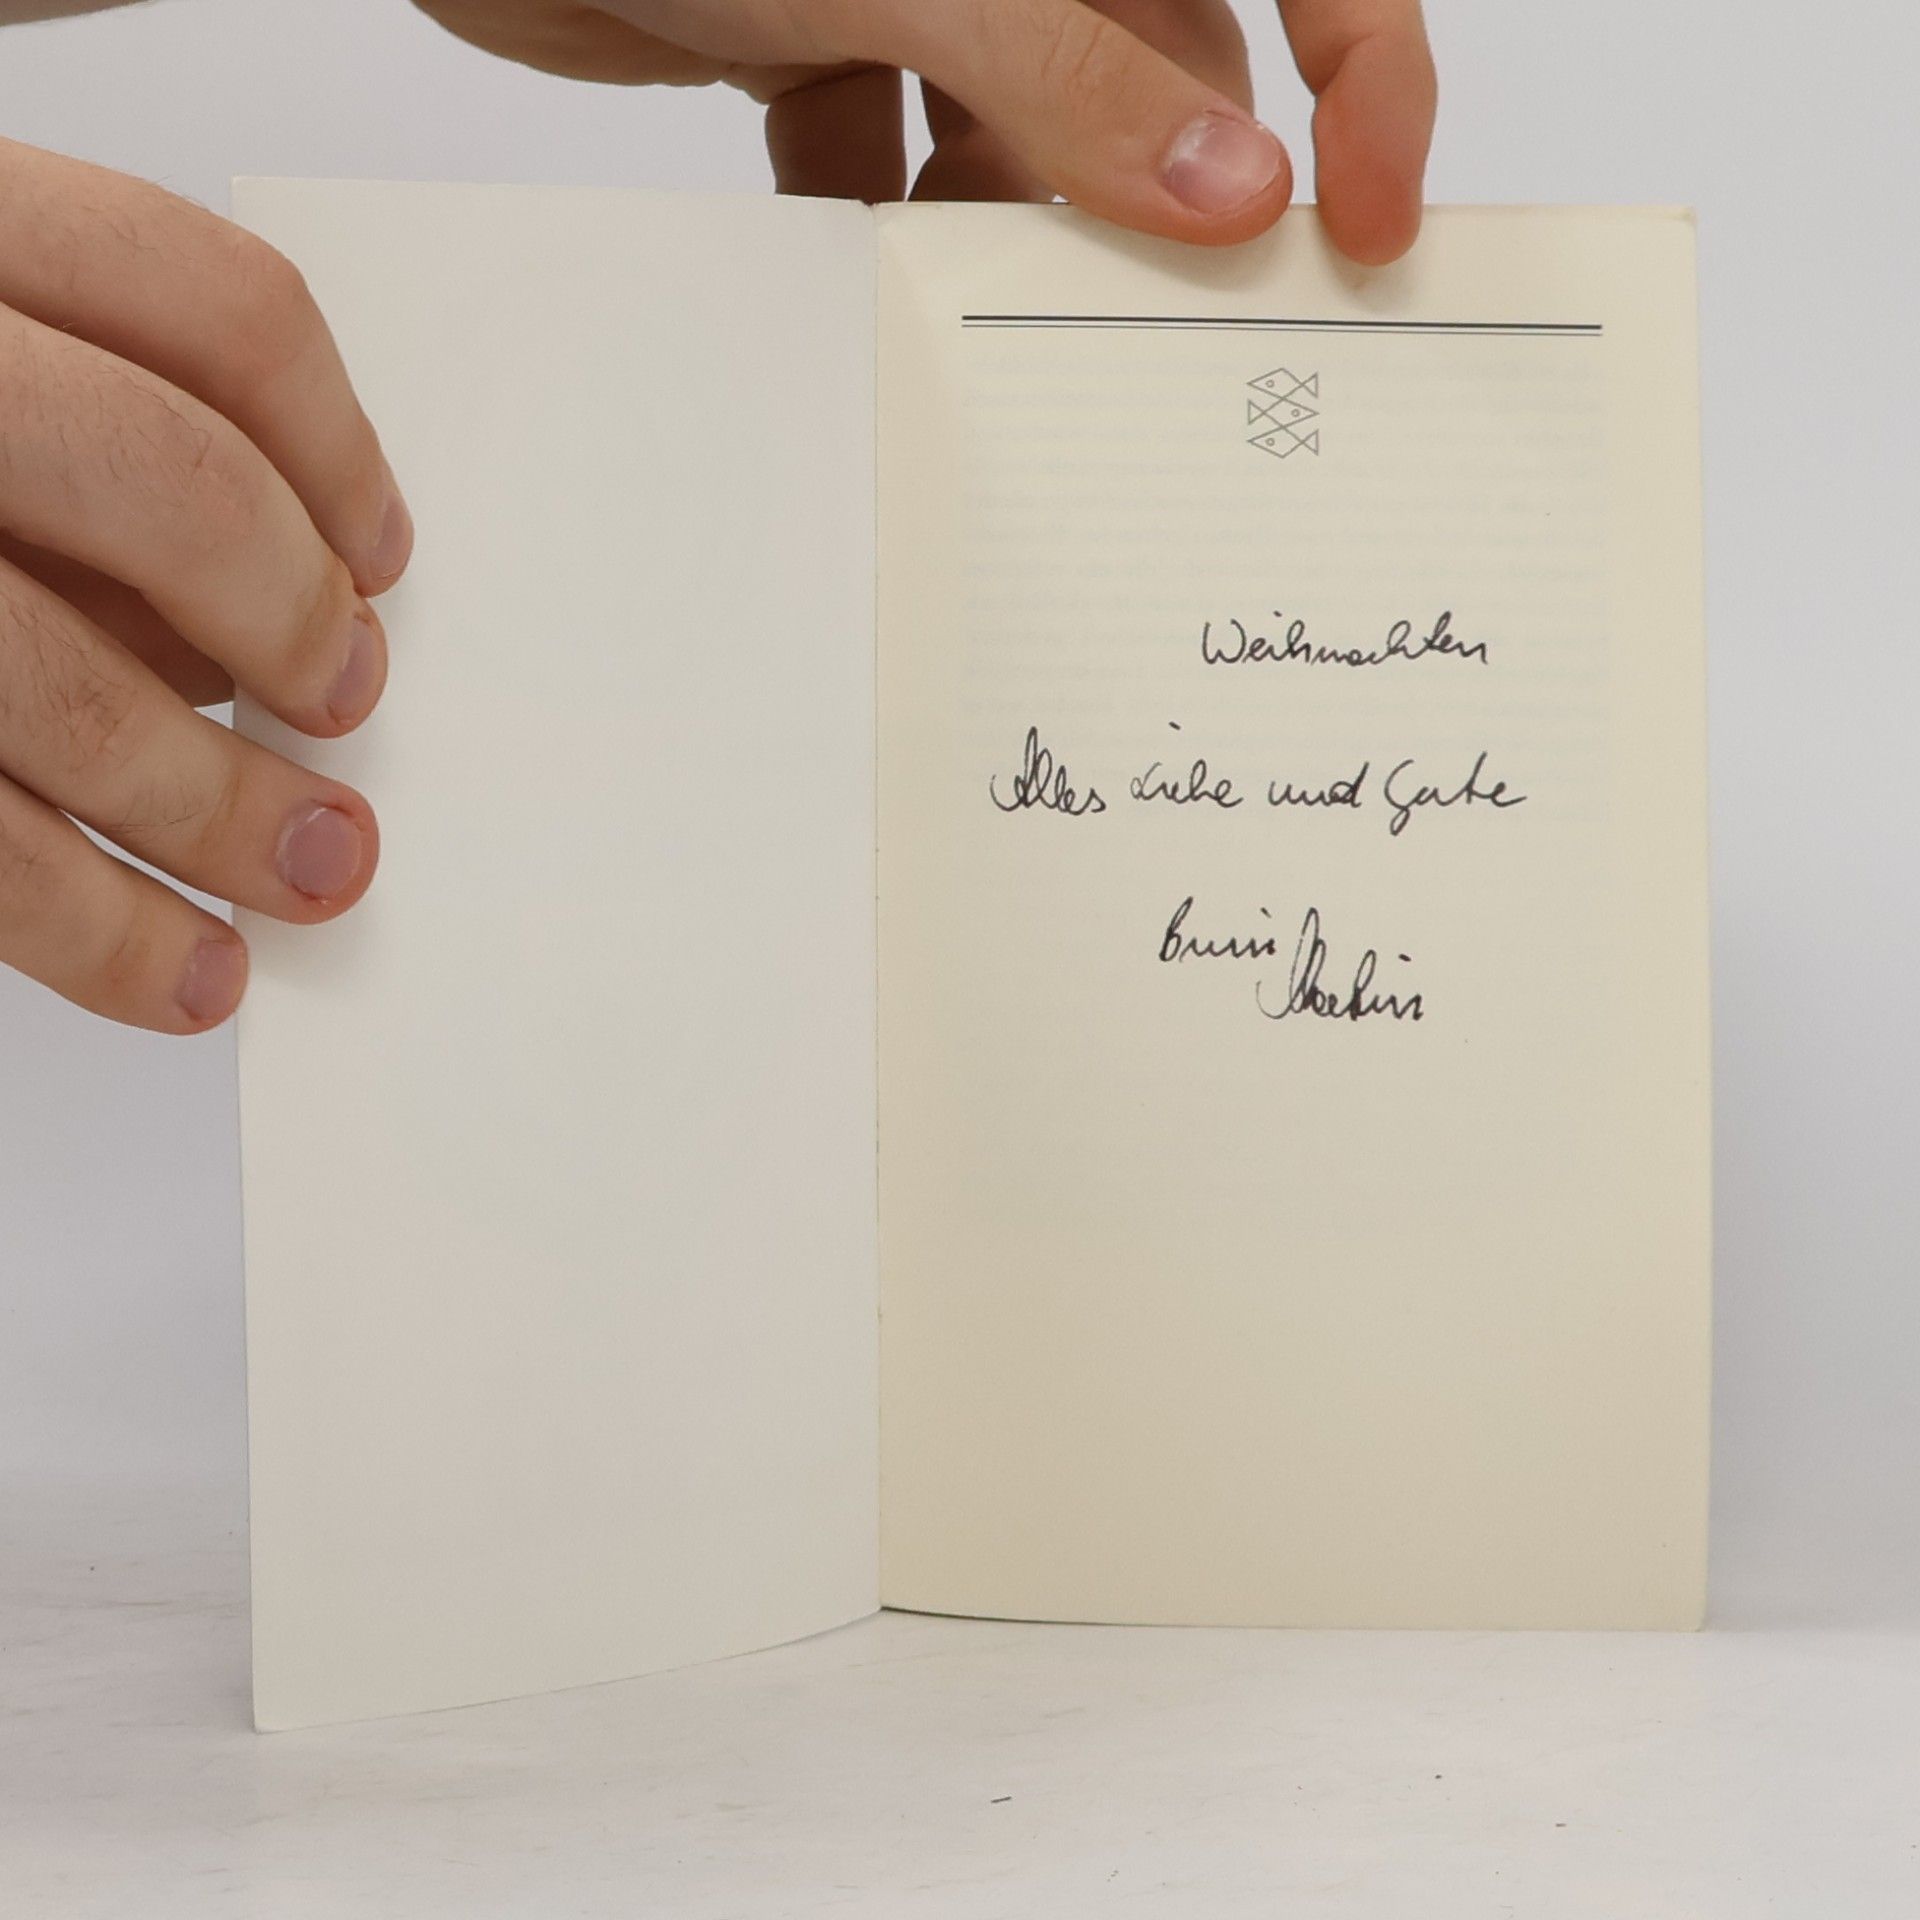 Weihnachten
Alles Liebe und Gute
Martin